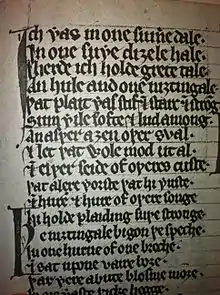 Ich ƿas in one sumere dale.
In one suþe diȝele hale.
Iherde ich holde grete tale.
An hule and one niȝtingale.
Þat plait ƿas stif & starc & strong
Sum ƿile softe & lud among.
An aiþer aȝen oþer sval.
& let þat vole mod ut al.
& eiþer seide of oþeres custe.
Þat alere ƿorste þat hi ƿuste.
& hure & hure of oþere songe
Hi holde plaiding suþe stronge.
Þe niȝtingale bigon þe speche.
In one hurne of one breche.
& sat upone vaire boȝe.
Þar ƿere abute blosme inoȝe.
In ore vaste þicke hegge.